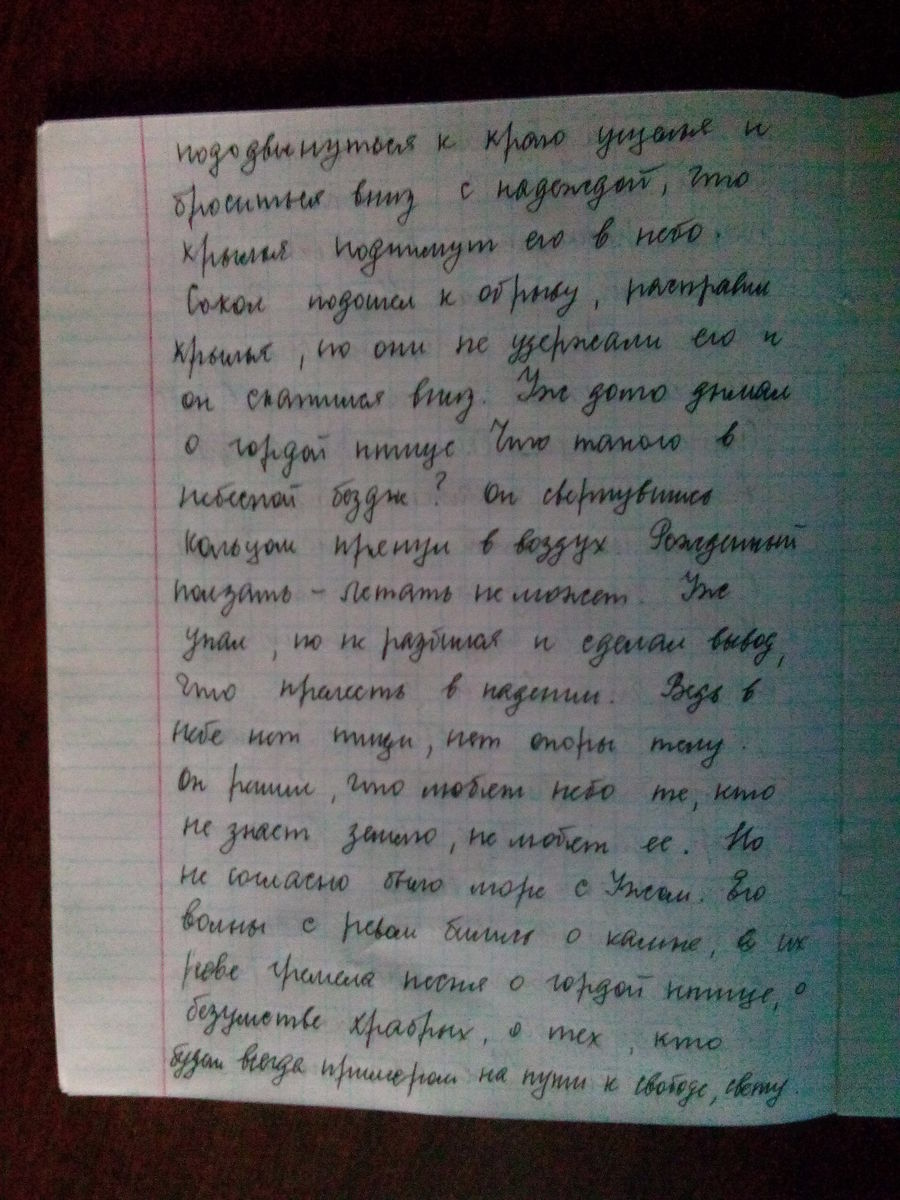 пододвинуться к краю ущелья и
броситься вниз с надеждой, что
крылья поднимут его в небо.
Сокол подошел к обрыву, расправил
крылья, но они не удержали его и
он скатился вниз. Уж долго думал
о гордой птице Что такого в
небесной бездне? Он свернувшись
кольцом прянул в воздух Рожденный
ползать - летать не может. Уж
упал, но не разбился и сделал вывод,
что прелесть в падении. Ведь в
небе нет пищи, нет опоры телу.
Он решил, что любят небо те, кто
не знает землю, не любят ее. Но
не согласно было море с Ужом. Его
волны с ревом бились о камне, в их
реве гремела песня о гордой птице, о
безумстве храбрых, о тех, кто
будет всегда примером на пути к свободе, свету.